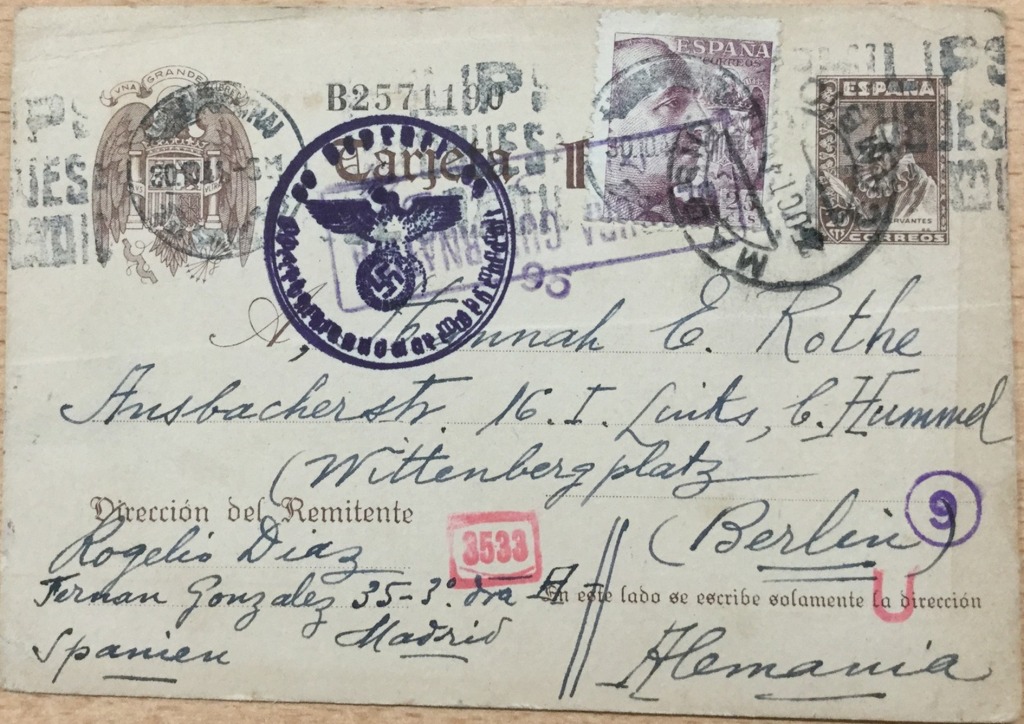 VNA GRANDE
B2571190
ESPAÑA
CORREOS
ESPAÑA
CERVANTES
CORREOS
Tarjeta
Oberkommando der Wehrmacht
CENSURA GUBERNATIVA
95
MADRID
A, Hannah E. Rothe
Ansbacherstr. 16. I. Links, b. Hummel
(Wittenbergplatz
9
Dirección del Remitente
(Berlin)
Rogelio Diaz
3533
U
Fernan Gonzalez 35-3º. dra A
En este lado se escribe solamente la dirección
Madrid
Spanien
Alemania